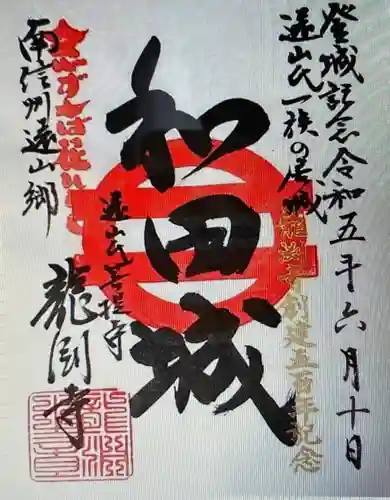 登城記念令和五年六月十日
遠山氏一族の居城
龍淵寺創建五百年記念
和田城
遠山氏菩提寺
龍淵寺
南信州遠山郷